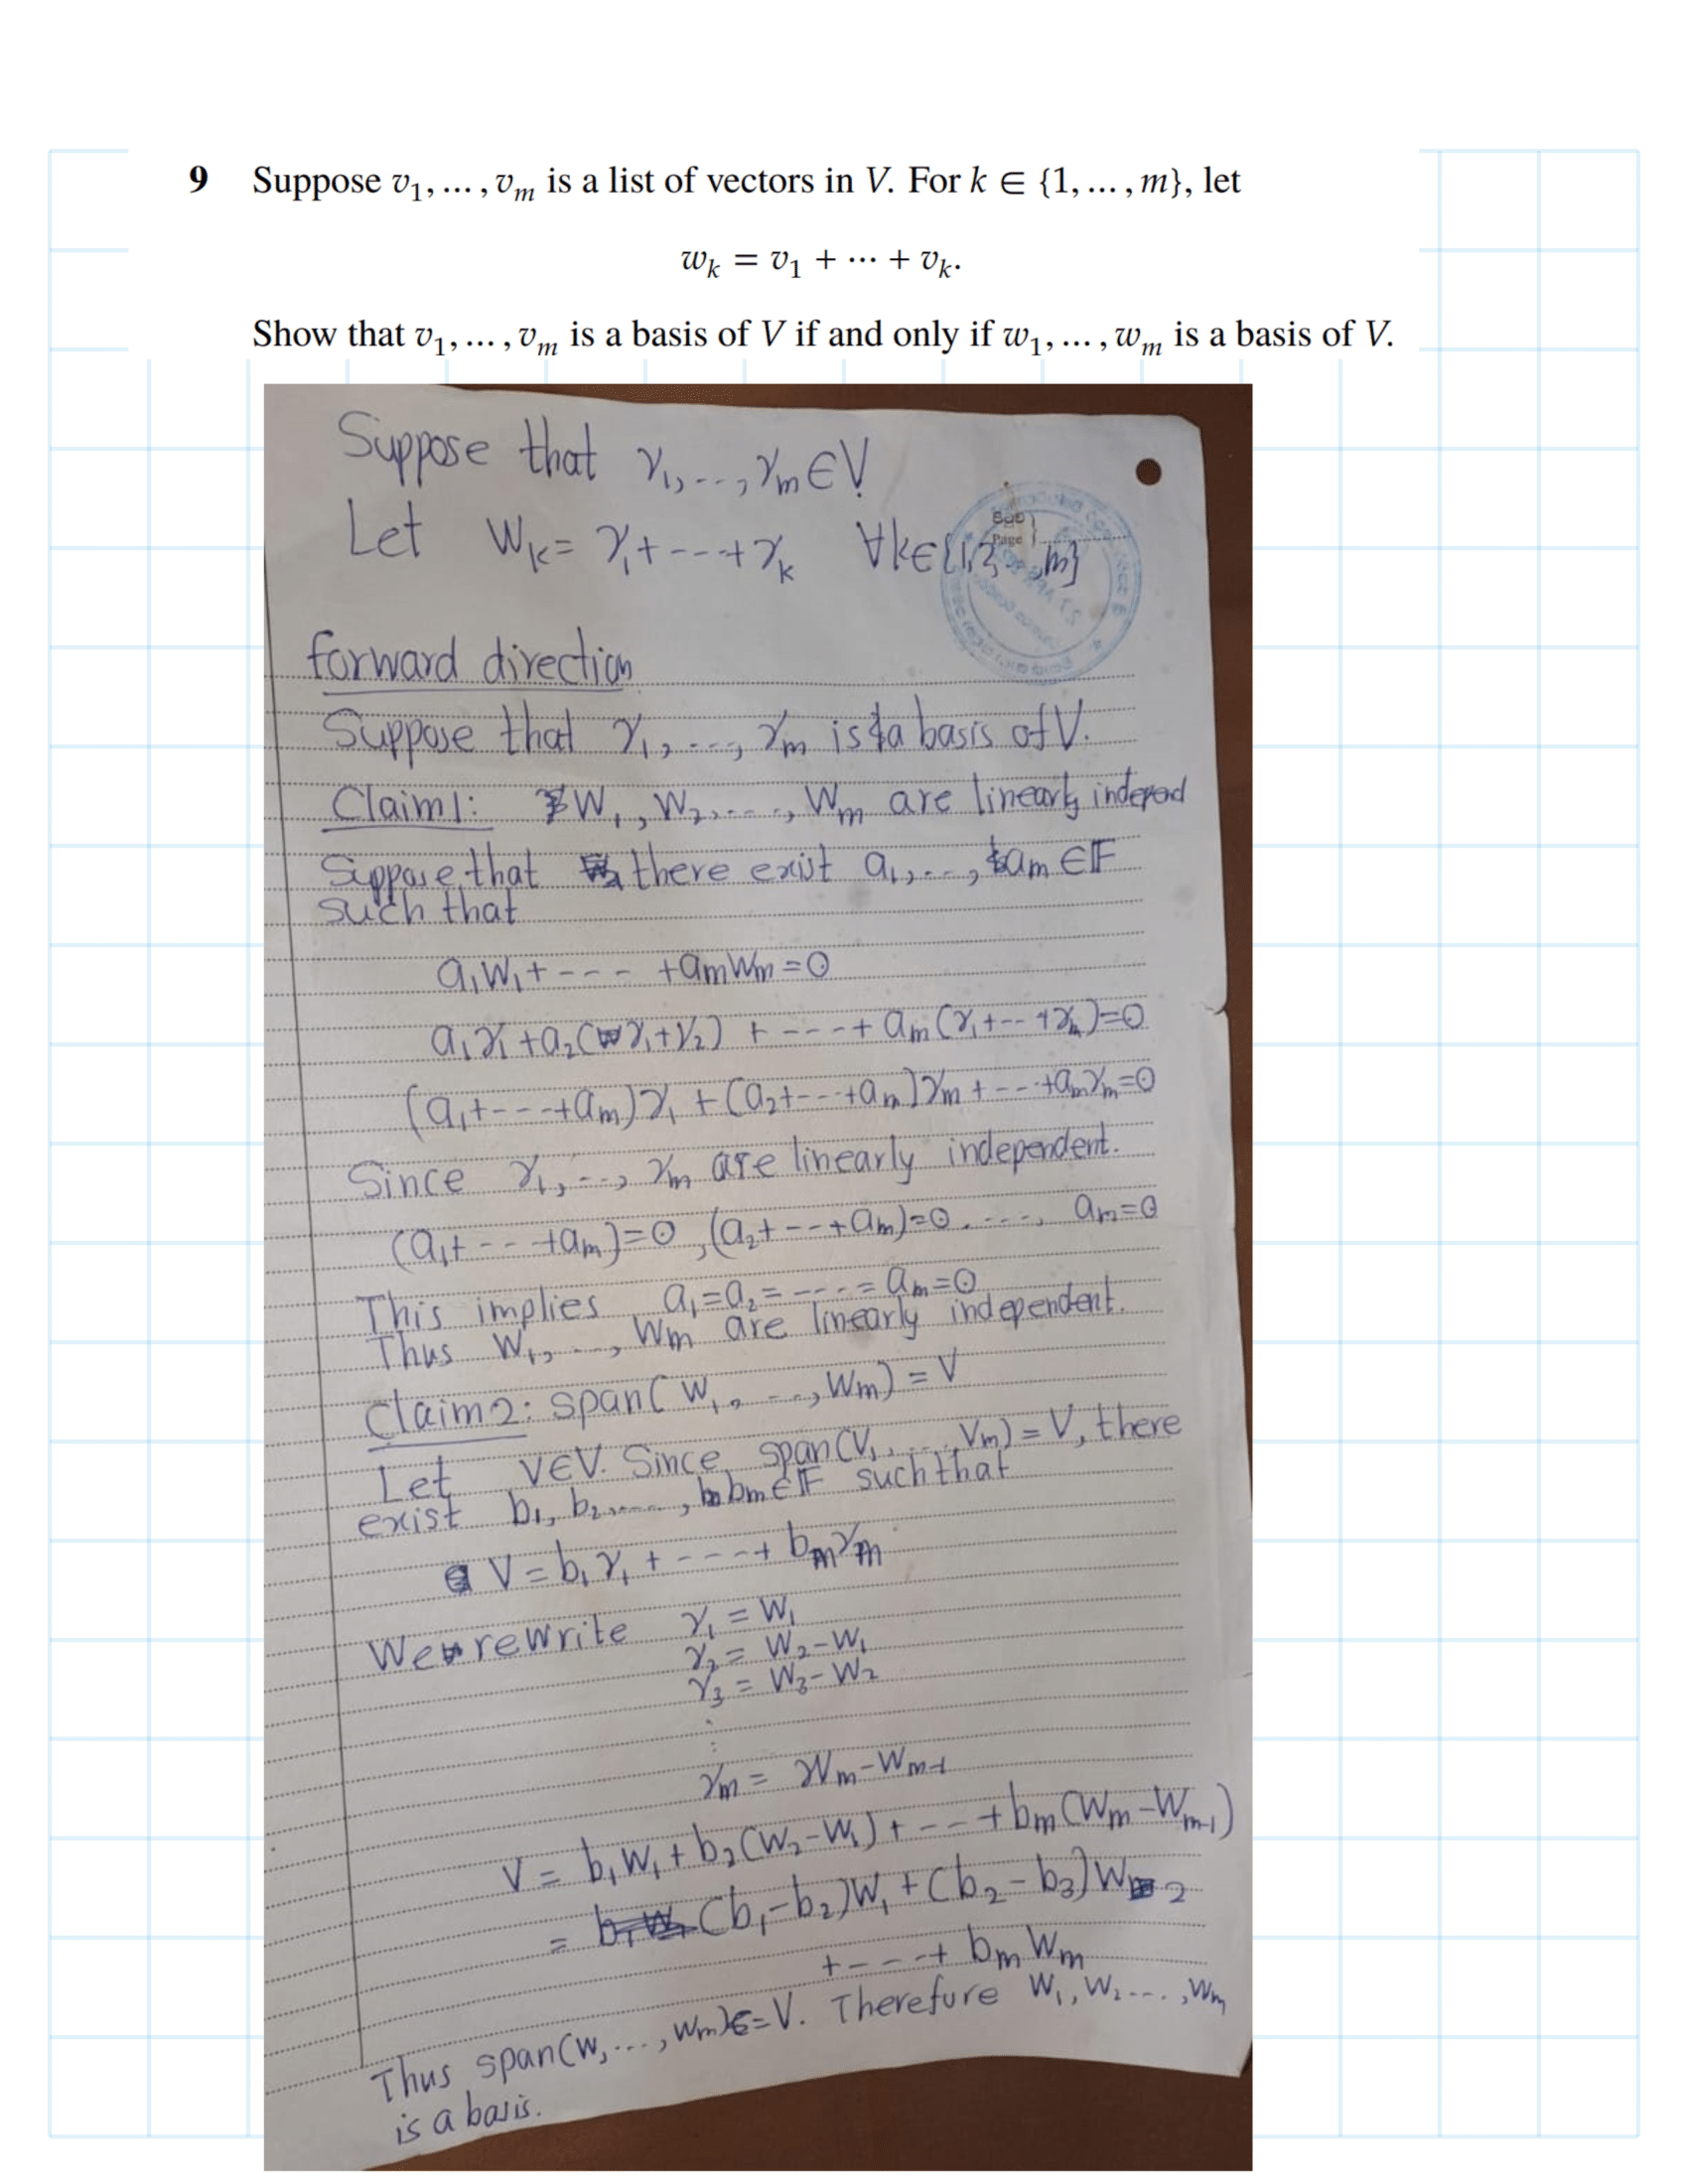 9 Suppose v₁, … , vₘ is a list of vectors in V. For k ∈ {1, … , m}, let
wₖ = v₁ + ⋯ + vₖ.
Show that v₁, … , vₘ is a basis of V if and only if w₁, … , wₘ is a basis of V.
Suppose that γ₁, ---, γₘ ∈ V
Let Wₖ = γ₁ + --- + γₖ ∀k∈{1,2, ,m}
පිටුව
Page
forward direction
Suppose that γ₁, ---, γₘ is a basis of V.
Claim 1: W₁, W₂, ----, Wₘ are linearly indepod
Suppose that there exist a₁, ---, aₘ ∈ 𝔽
such that
a₁W₁ + --- + aₘWₘ = 0
a₁γ₁ + a₂(γ₁+γ₂) + --- + aₘ(γ₁+--+γₘ)=0
(a₁+---+aₘ)γ₁ + (a₂+---+aₘ)γₘ + ---+aₘγₘ=0
Since γ₁, ---, γₘ are linearly independent.
(a₁+---+aₘ)=0, (a₂+--+aₘ)=0, ----, aₘ=0
This implies a₁=a₂= ---- = aₘ=0
Thus W₁, ---, Wₘ are linearly independent.
Claim 2: span(W₁, ---, Wₘ) = V
Let v∈V. Since span(V₁, ..., Vₘ) = V, there
exist b₁, b₂, ----, bₘ∈𝔽 such that
V = b₁γ₁ + ---- + bₘγₘ
We rewrite γ₁ = W₁
γ₂ = W₂-W₁
γ₃ = W₃-W₂
⋮
γₘ = Wₘ-Wₘ₋₁
V = b₁W₁ + b₂(W₂-W₁) + --- + bₘ(Wₘ-Wₘ₋₁)
= (b₁-b₂)W₁ + (b₂-b₃)W₂
+ ---+ bₘWₘ
Thus span(W₁, ..., Wₘ) = V. Therefore W₁, W₂ ---, Wₘ
is a basis.